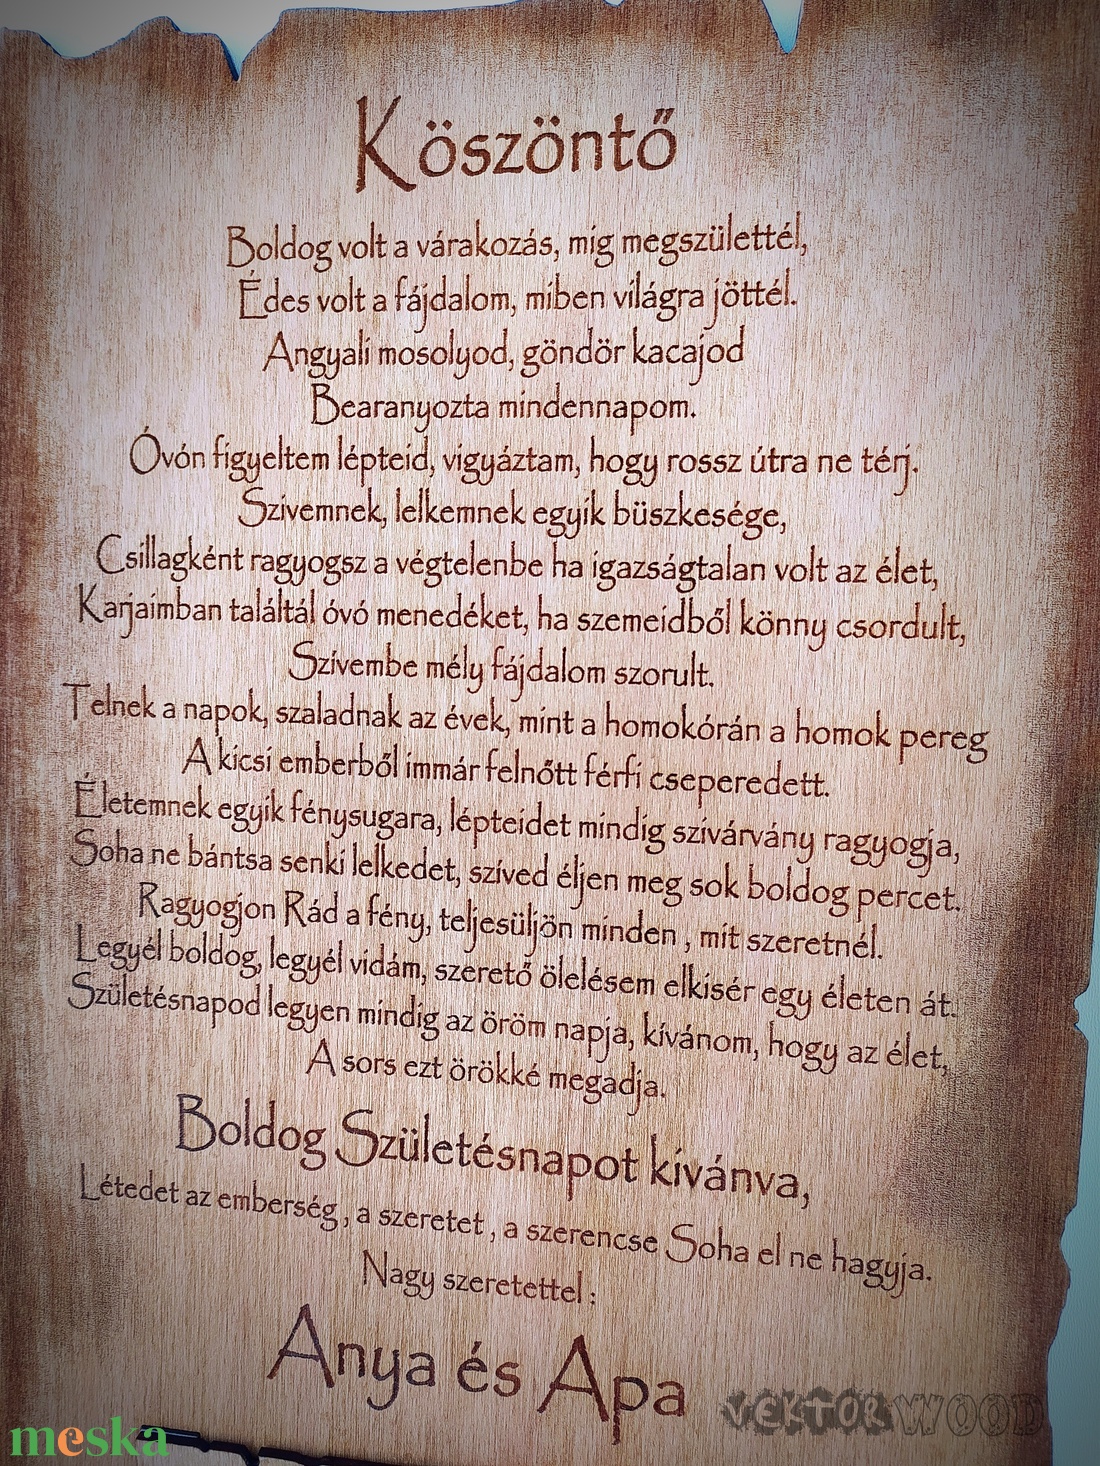 Köszöntő
Boldog volt a várakozás, míg megszülettél,
Édes volt a fájdalom, miben világra jöttél.
Angyali mosolyod, göndör kacajod
Bearanyozta mindennapom.
Óvón figyeltem lépteid, vigyáztam, hogy rossz útra ne térj.
Szívemnek, lelkemnek egyik büszkesége,
Csillagként ragyogsz a végtelenbe ha igazságtalan volt az élet,
Karjaimban találtál óvó menedéket, ha szemeidből könny csordult,
Szívembe mély fájdalom szorult.
Telnek a napok, szaladnak az évek, mint a homokórán a homok pereg
A kicsi emberből immár felnőtt férfi cseperedett.
Életemnek egyik fénysugara, lépteidet mindig szivárvány ragyogja,
Soha ne bántsa senki lelkedet, szíved éljen meg sok boldog percet.
Ragyogjon Rád a fény, teljesüljön minden , mit szeretnél.
Legyél boldog, legyél vidám, szerető ölelésem elkísér egy életen át.
Születésnapod legyen mindig az öröm napja, kívánom, hogy az élet,
A sors ezt örökké megadja.
Boldog Születésnapot kívánva,
Létedet az emberség , a szeretet , a szerencse Soha el ne hagyja.
Nagy szeretettel :
Anya és Apa
VEKTOR WOOD
meska